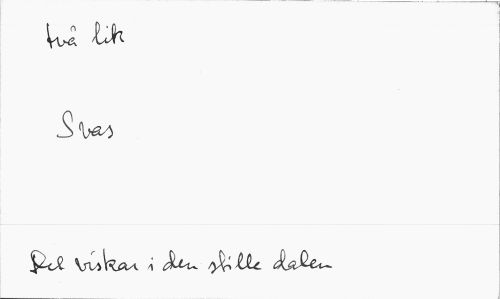 två lik
Svas
Det viskar i den stille dalen